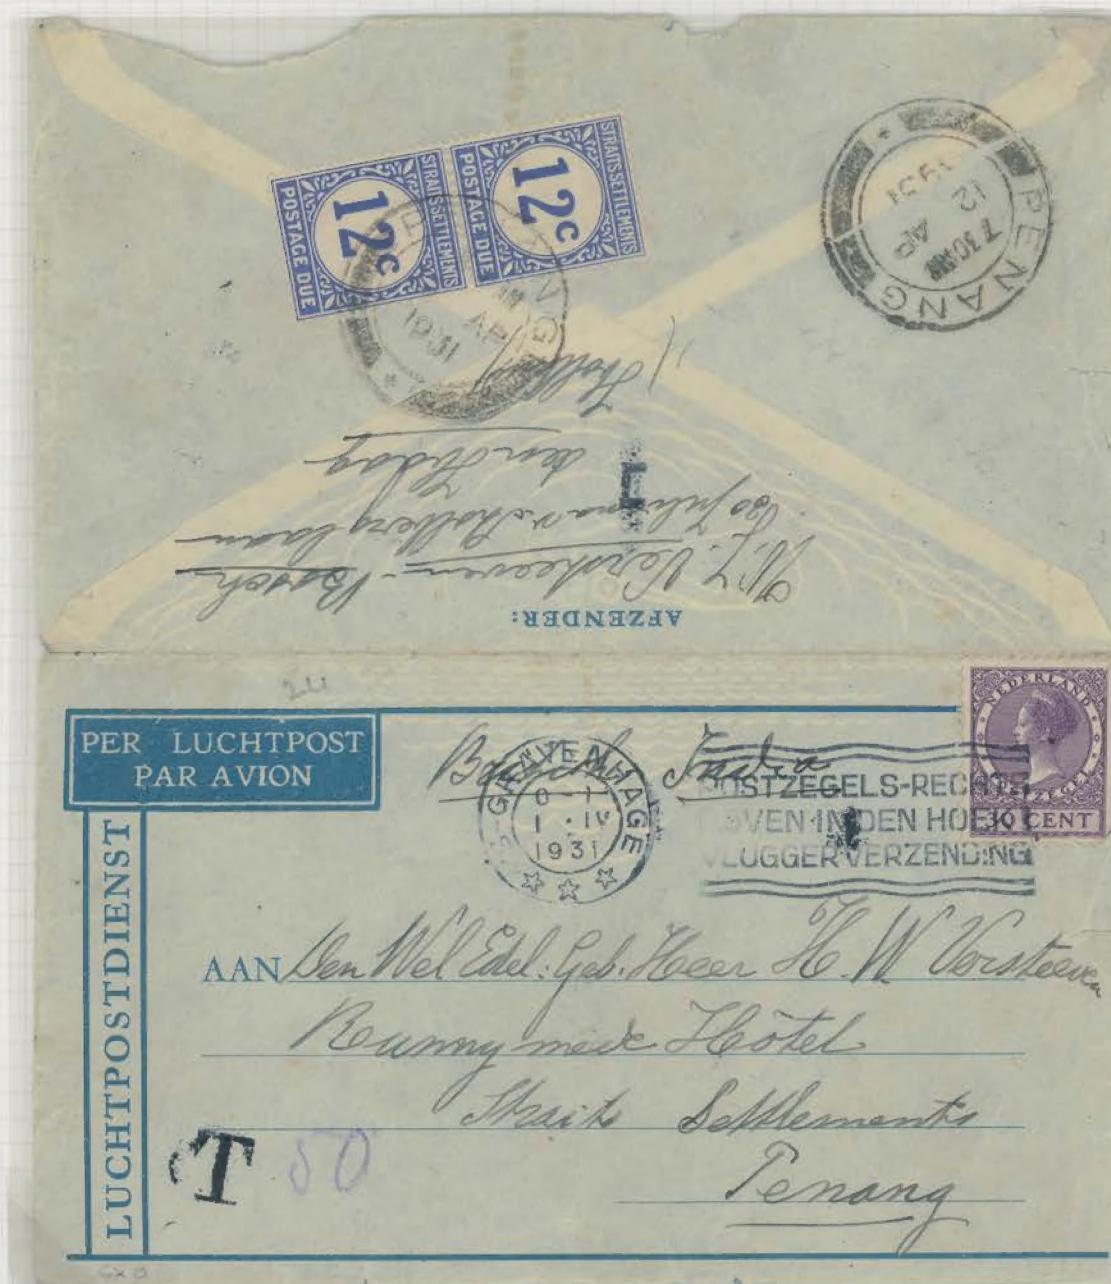 STRAITS SETTLEMENTS
12c
POSTAGE DUE
STRAITS SETTLEMENTS
12c
POSTAGE DUE
PENANG
7 30 AM
12 AP
1931
PENANG
AM
AP
1931
AFZENDER:
Versteeven-Bosch
Juliana v. Stolberglaan
den Haag
Holland
T
24
PER LUCHTPOST
PAR AVION
LUCHTPOSTDIENST
British India
'S-GRAVENHAGE
1 · IV
1931
POSTZEGELS-RECHTS
BOVEN·IN DEN HOEK
VLUGGER VERZENDING
NEDERLAND
POSTZEGEL
30 CENT
AAN Den Wel Edel: Geb. Heer H. W. Versteeven
Runnymede Hôtel
Straits Settlements
Penang
T 50